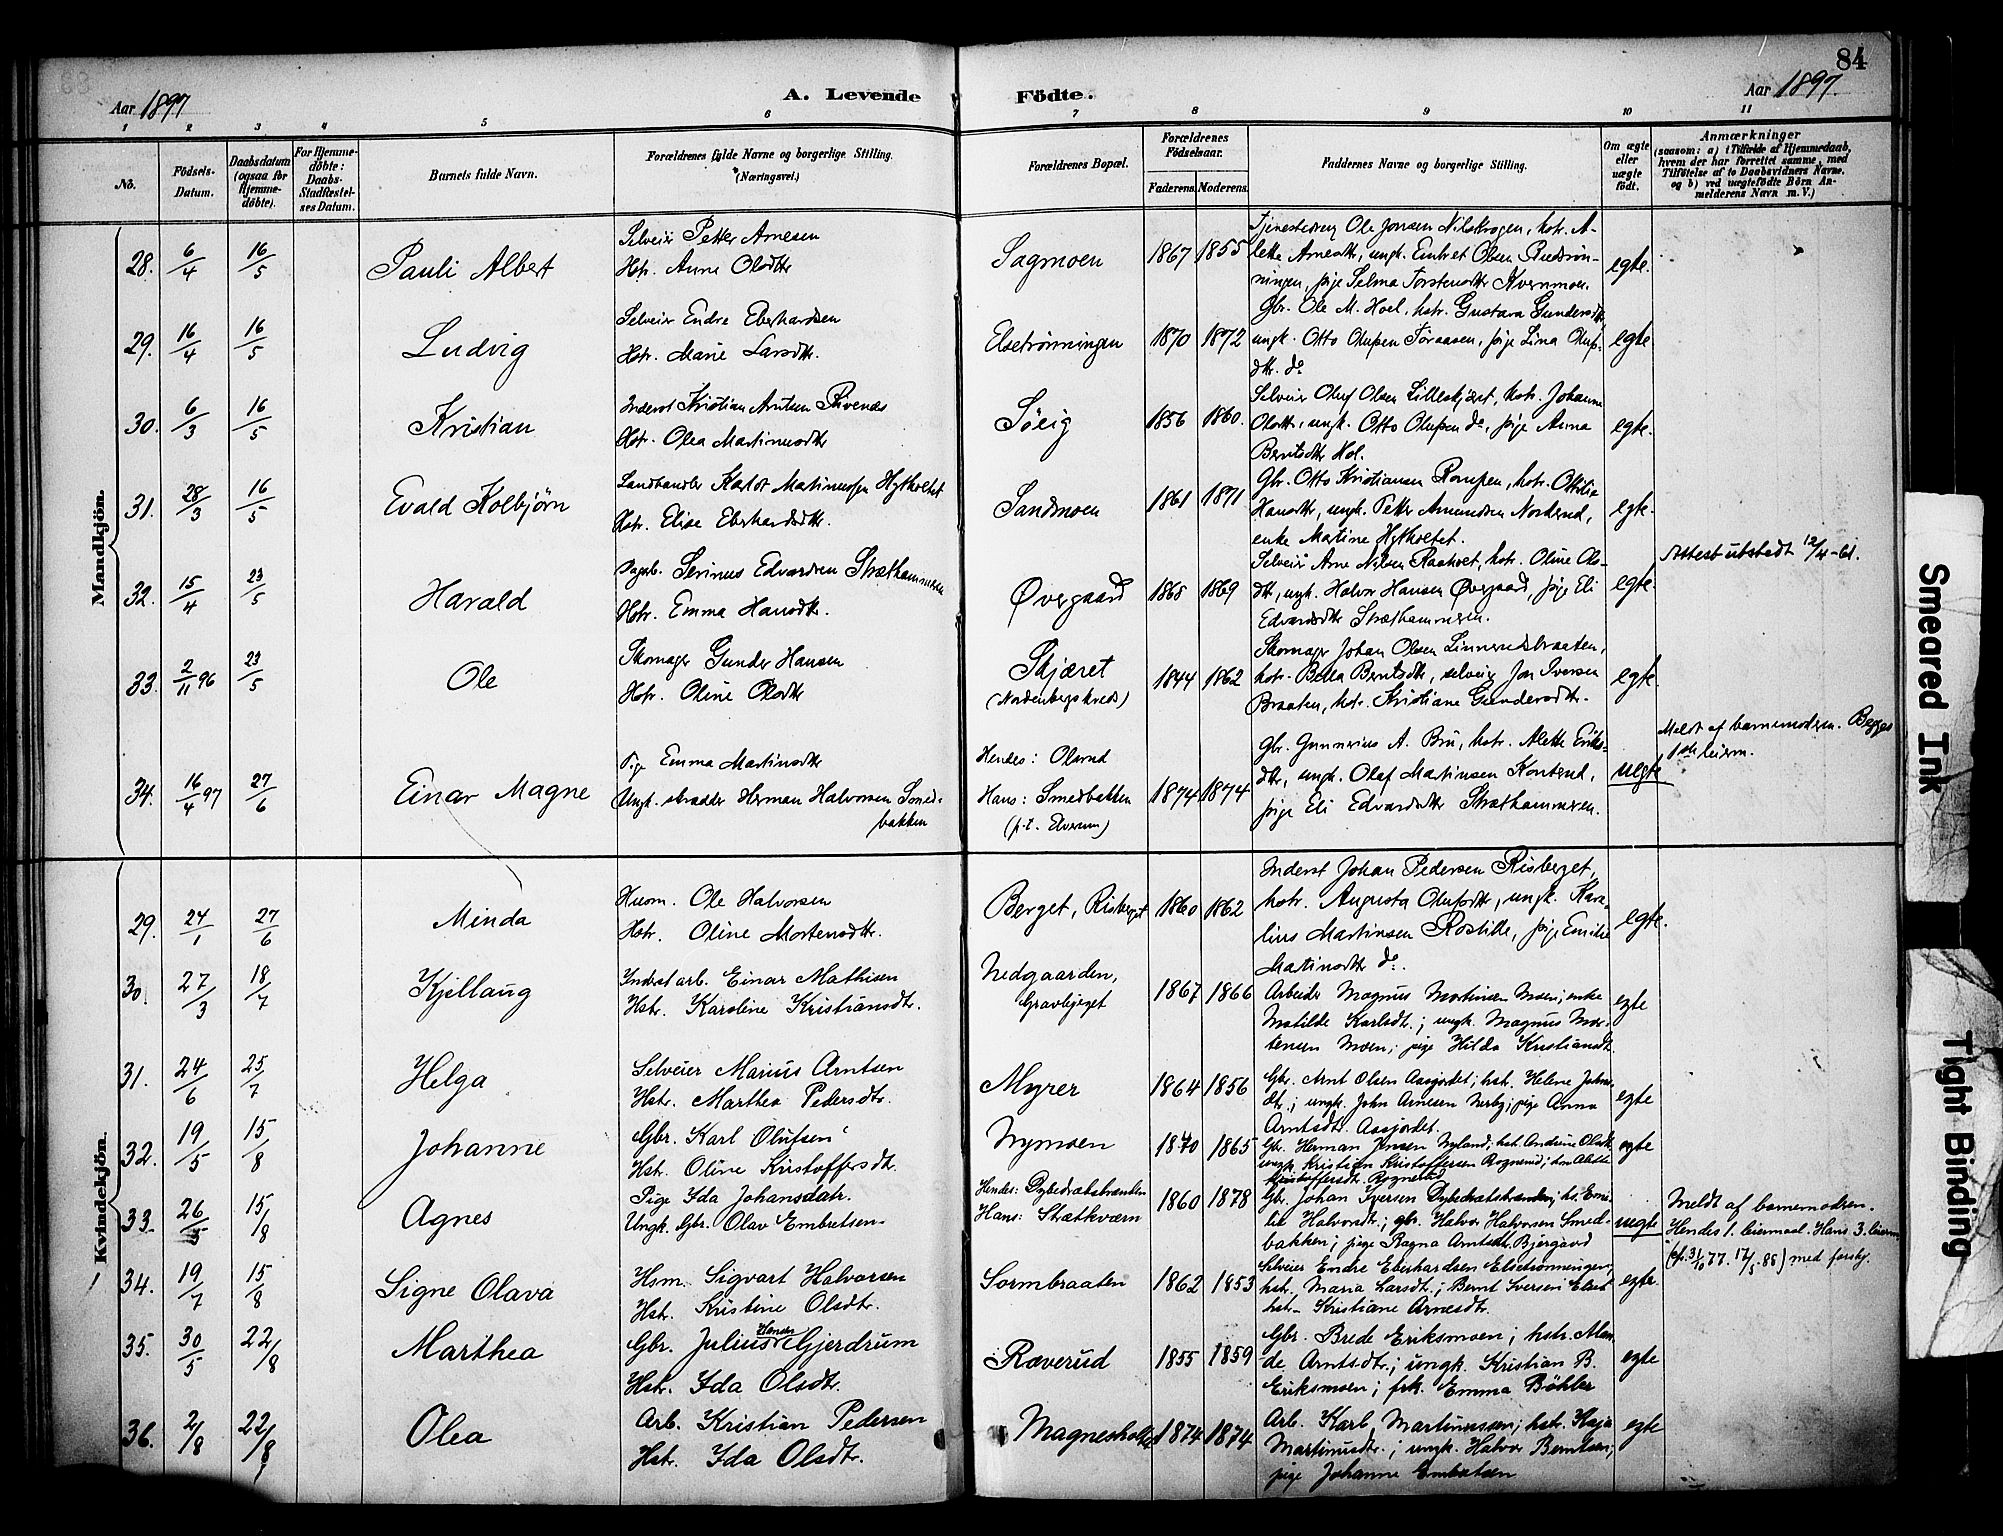 84
Aar 1897
A. Levende Födte.
Aar 1897.
1 2 3 4 5 6 7 8 9 10 11
No.
Födsels-Datum.
Daabsdatum (ogsaa for Hjemme-döbte).
For Hjemme-döbte: Daabs-Stadfæstel-ses Datum.
Barnets fulde Navn.
Forældrenes fulde Navne og borgerlige Stilling. (Næringsvei.)
Forældrenes Bopæl.
Forældrenes Födselsaar.
Faderens. Moderens.
Faddernes Navne og borgerlige Stilling.
Om ægte eller uægte födt.
Anmærkninger
(saasom: a) i Tilfælde af Hjemmedaab, hvem der har forrettet samme, med Tilföielse af to Daabsvidners Navne. og b) ved uægtefödte Börn An-melderens Navn m. V.)
Mandkjön.
28. 6/4 16/5 Pauli Albert
Selveier Petter Arnesen
Hstr. Anne Olsdtr
Sagmoen 1867 1855
Tjenestedreng Ole Jonsen Nilskrogen, hstr. A-
lette Arnesdtr, ungk. Embret Olsen
ningen, pige Selma Torstensdtr Kvernmoen.
egte.
29. 16/4 16/5 Ludvig
Selveier Endre Eberhardsen
Hstr. Marie Larsdtr.
Elsetrönningen 1870 1872
Gbr. Ole M. Hoel, hstr. Gustava Gundersdtr
ungk. Otto Olufsen Töraasen, pige Lina Olufs-
dtr. do
egte
30. 6/3 16/5 Kristian
Inderst Kristian Arntsen
Hstr. Olea Martinusdtr
Söeig 1856 1860.
Selveier Oluf Olsen Lilleskjæret, hstr. Johanne
Olsdtr, ungk. Otto Olufsen do, pige Anna
Berntsdtr Hol.
egte.
31. 28/3 16/5 Evald Kolbjörn
Landhandler Martinussen Hytholtet
Hstr. Elise Eberhardsdtr.
Sandmoen 1861 1871
Gbr. Otto Kristiansen hstr. Ottilie
Hansdtr, ungk. Petter Amundsen Norderud,
enke Martine Hytholtet.
egte.
32. 15/4 23/5 Harald
Dagarb. Serinus Edvardsen Stræthammeren
Hstr. Emma Hansdtr.
Øvergaard 1868 1869
Selveier Arne Nilsen hstr. Oline Ols-
dtr, ungk. Halvor Hansen Øvergaard, pige Eli
Edvardsdtr Stræthammeren.
egte.
Attest utstedt 12/4-61.
33. 2/11 96 23/5 Ole
Skomager Gunder Hansen
Hstr. Oline Olsdtr
Skjæret
(Nordenbergs kreds)
1844 1862
Skomager Johan Olsen Linnerudsbraaten,
hstr. Berntsdtr, selveier Jon Iversen
Braaten, hstr. Kristiane Gundersdtr.
egte.
34. 16/4 97 27/6 Einar Magne
Pige Emma Martinsdtr
Ungk. skrædder Herman Halvorsen Smed-
bakken
Hendes: Olsrud
Hans: Smedbakken
(p.t. Elverum)
1874 1874
Gbr. Gunnerius A. Bru, hstr. Alette Eriks-
dtr, ungk. Olaf Martinsen
pige Eli Edvardsdtr Stræthammeren.
uegte
Meldt af barnemoderen. Begges
1ste leierm.
Kvindekjön.
29. 24/1 27/6 Minda
Husm. Ole Halvorsen
Hstr. Oline Mortensdtr.
Berget, Risberget 1860 1862
Inderst Johan Pedersen Risberget,
hstr. Augusta Olufsdtr, ungk. Kara-
lius Martinsen pige Emilie
Martinsdtr do.
egte.
30. 27/3 18/7 Kjellaug
Indrst arb. Einar Mathisen
Hstr. Karoline Kristiansdtr.
Nedgaarden,
Gravbjerget
1867 1866
Arbeider Magnus Martinsen Moen; enke
Matilde Karlsdtr.; ungk. Magnus Mor-
tensen Moen; pige Hilda Kristiansdtr
egte
31. 24/6 25/7 Helga
Selveier Marius Arntsen
Hstr. Marthea Pedersdtr.
Myrer 1864 1856
Gbr. Arnt Olsen Aasjordet; hst. Helene Johns-
dtr.; ungk. John Arnesen Nerby; pige Anna
Arntsdtr. Aasjordet.
egte
32. 19/5 15/8 Johanne
Gbr. Karl Olufsen
Hst. Oline Kristoffersdtr.
Nymoen 1870 1865
Gbr. Herman Jensen Nyland; hst. Andrine Olsdtr
ungk. Kristian Kristoffersen Rognerud; Alette
Kristoffersdtr. Rognerud
egte
33. 26/5 15/8 Agnes
Pige Ida Johansdatr.
Ungk. Gbr. Olav Embretsen
Hendes: Dybedratsbraaten
Hans: Strætkværn
1860 1878
Gbr. Johan Iversen Dybedratsbraaten; hs. Emi-
lie Halvorsdtr.; gbr. Halvor Halvorsen Smed-
bakken; pige Ragna Arntsdtr. Bjergaard
uegte
Meldt af barnemodren.
Hendes 1. leiermaal. Hans 3. leierm.
(cfr. 31/10 77. 17/5 88) med forskj.
34. 19/7 15/8 Signe Olava
Hsm. Sigvart Halvorsen
Hst. Kristine Olsdtr.
Sormbraaten 1862 1853
Selveier Endre Eberhardsen Elsetrönningen;
hst. Maria Larsdtr.; Bernt Iversen
hst. Kristiane Arnesdtr.
egte.
35. 30/5 22/8 Marthea
Gbr. Julius Hansen Gjerdrum
Hst. Ida Olsdtr.
Ræverud 1855 1859
Gbr. Brede Eriksmoen; hstr. Man-
de Arntsdtr.; ungk. Kristian B.
Eriksmoen; frk. Emma Böhler
egte
36. 2/8 22/8 Olea
Arb. Kristian Pedersen
Hst. Ida Olsdtr.
Magnesholtet 1874 1874
Arb. Karl Martinussen; hst. Kaja
Martinusdtr.; ungk. Halvor Berntsen;
pige Johanne Embretsen
egte
Smeared Ink
Tight Binding